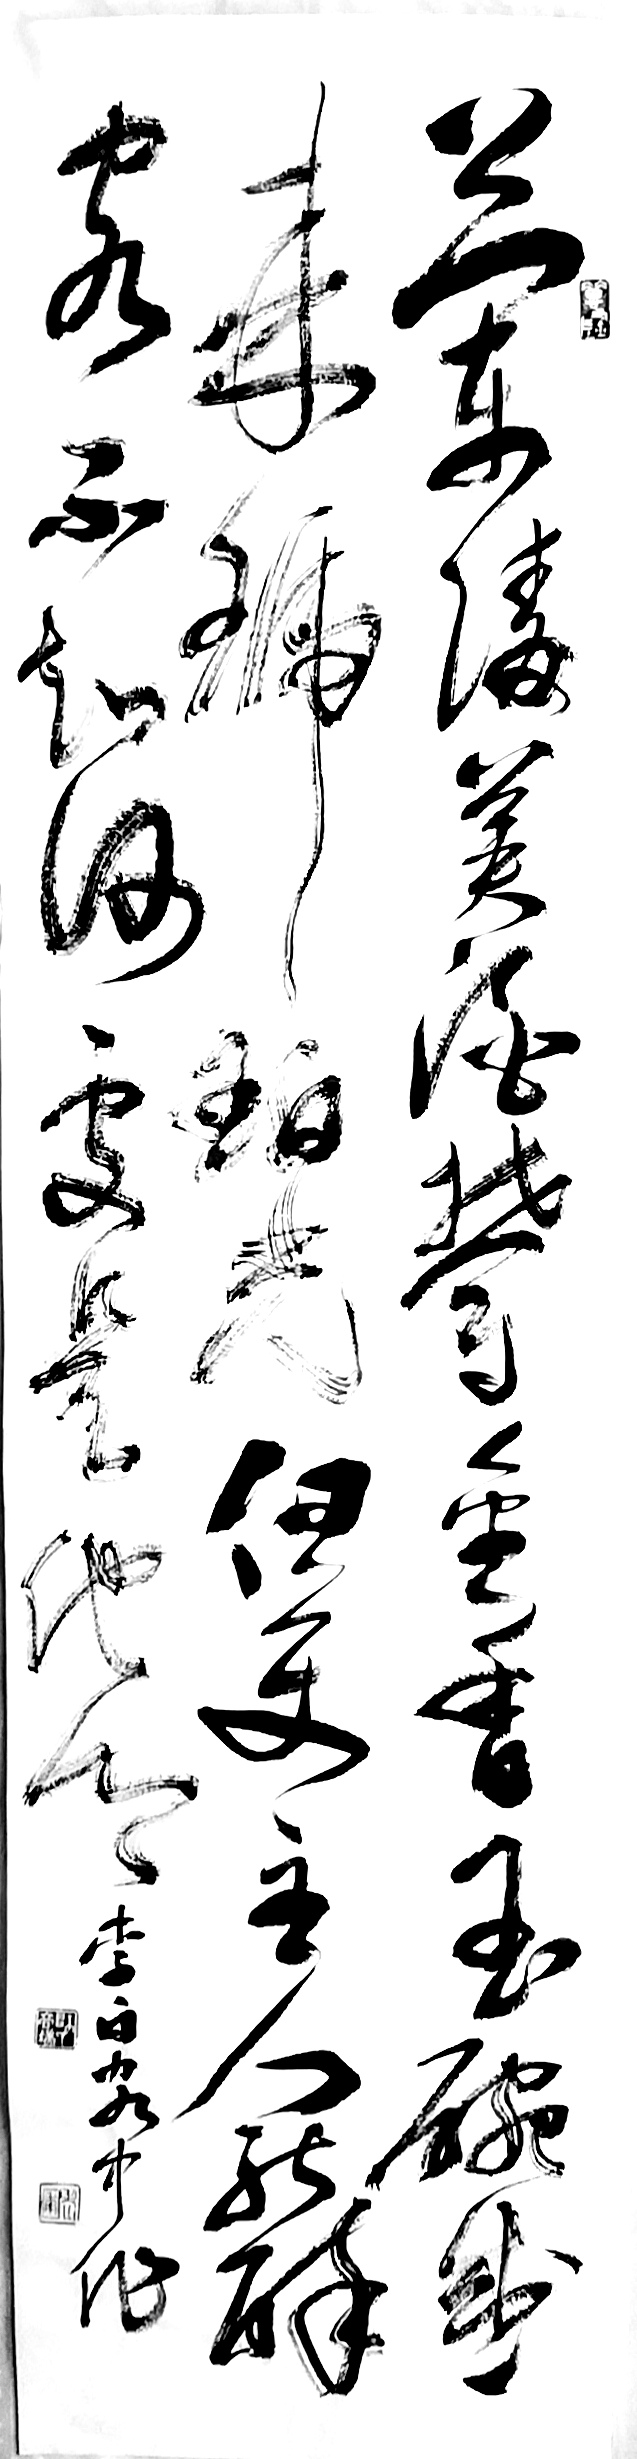 蘭陵美酒鬱金香玉碗盛
來琥珀光但使主人能醉
客不知何處是他鄉 李白客中作